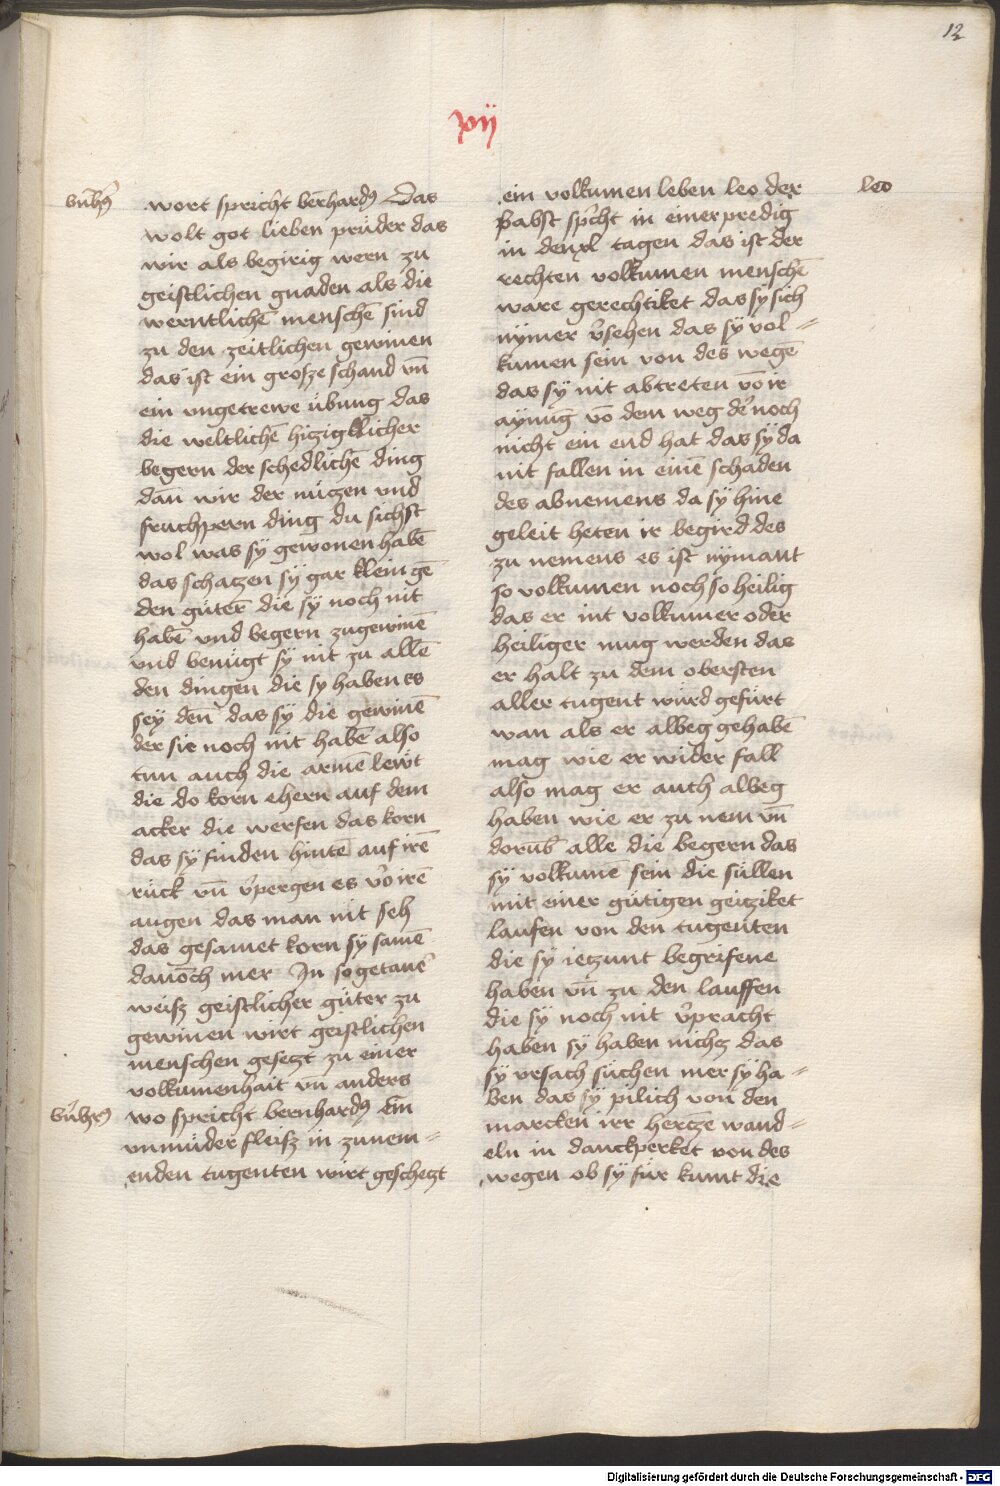 12
xij
wort spricht bernhardꝰ Das
wolt got lieben prüder das
wir als begirig wern zu
geistlichen gnaden als die
werntlichē menschē sind
zu den zeitlichen gewinen
das ist ein grosze schand vn̄
ein vngetrewe übung das
die weltlichē hizigklicher
begern der schedlichē ding
dan̄ wir der nüczen vnd
fruchpern ding du sichst
wol was sy gewonen habē
das schatzen sy gar klein gē
den güterē die sy noch nit
habē vnd begern zugewinē
vnd benügt sy nit zu allē
den dingen die sy haben es
sey den̄ das sy die gewinē
der sie noch nit habē also
tun auch die armē lewt
die do korn ehern auf dem
acker die werfen das korn
das sy finden hintē auf irē
rück vn̄ v̓pergen es vo̓ irē
augen das man nit seh
das gesamet korn sy samē
dan̄och mer In sogetanē
weisz geistlicher güter zu
gewinen wirt geistlichen
menschen gesetzt zu einer
volkumenhait vn̄ anders
wo spricht bernhardꝰ Ein
vnmüder fleisz in zunem=
enden tugenten wirt geschetzt
ein volkumen leben leo der
Babst sp̓cht in einer predig
in den xl tagen das ist der
rechten volkumen menschē
ware gerechtiket das sy sich
nymer v̓sehen das sy vol=
kumen sein von des wegē
das sy nit abtreten vō ir
aynūg vō dem weg de̓ noch
nicht ein end hat das sy da
nit fallen in einē schaden
des abnemens da sy hine
geleit heten ir begird des
zu nemens es ist nymant
so volkumen noch so heilig
das er nit volkumer oder
heiliger mug werden das
er halt zu dem obersten
aller tugent würd gefürt
wan als er albeg gehabē
mag wie er wider fall
also mag er auch albeg
haben wie er zu nem vn̄
dorūb alle die begern das
sy volkumē sein die süllen
mit einer gütigen geitziket
laufen von den tugenten
die sy ietzunt begrifene
haben vn̄ zu den lauffen
die sy noch nit v̓pracht
haben sy haben nichtz das
sy vrsach suchen mer sy ha=
ben das sy pilich von den
marcken irr hertze wand=
eln in danckperket von des
wegen ob sy für kumt die
leo